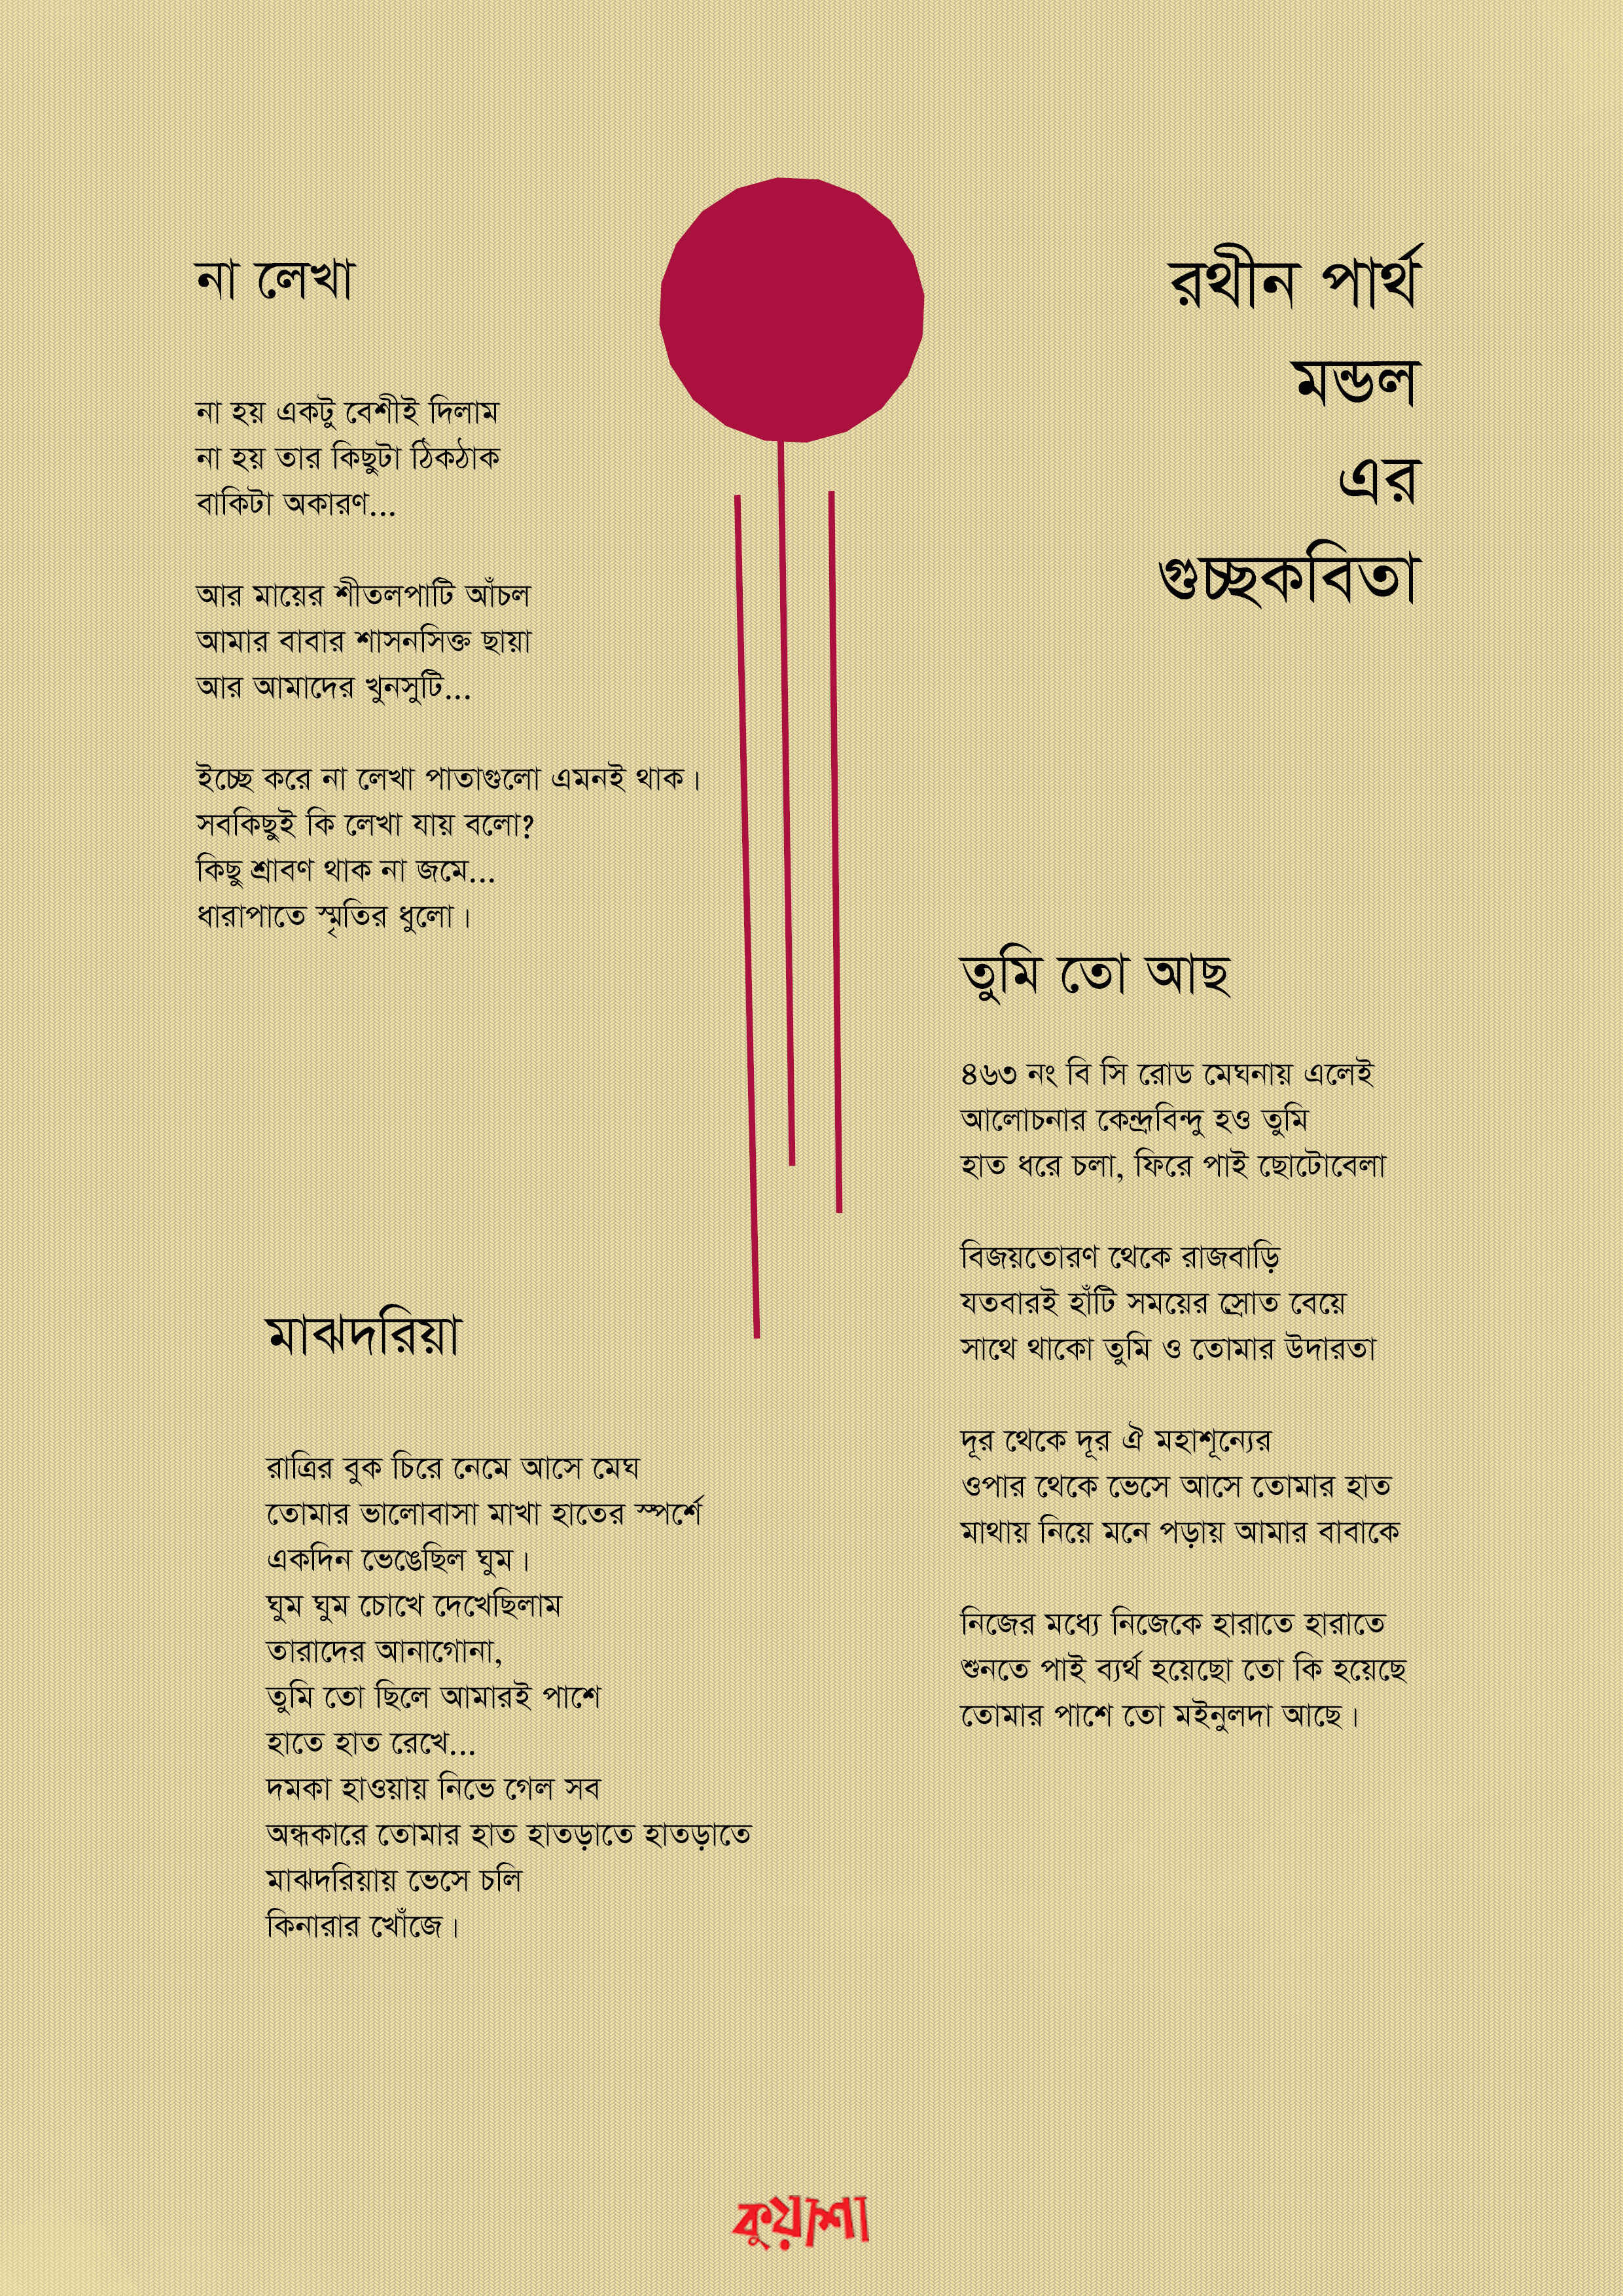 রথীন পার্থ
মন্ডল
এর
গুচ্ছকবিতা
না লেখা
না হয় একটু বেশীই দিলাম
না হয় তার কিছুটা ঠিকঠাক
বাকিটা অকারণ...
আর মায়ের শীতলপাটি আঁচল
আমার বাবার শাসনসিক্ত ছায়া
আর আমাদের খুনসুটি...
ইচ্ছে করে না লেখা পাতাগুলো এমনই থাক।
সবকিছুই কি লেখা যায় বলো?
কিছু শ্রাবণ থাক না জমে...
ধারাপাতে স্মৃতির ধুলো।
মাঝদরিয়া
রাত্রির বুক চিরে নেমে আসে মেঘ
তোমার ভালোবাসা মাখা হাতের স্পর্শে
একদিন ভেঙেছিল ঘুম।
ঘুম ঘুম চোখে দেখেছিলাম
তারাদের আনাগোনা,
তুমি তো ছিলে আমারই পাশে
হাতে হাত রেখে...
দমকা হাওয়ায় নিভে গেল সব
অন্ধকারে তোমার হাত হাতড়াতে হাতড়াতে
মাঝদরিয়ায় ভেসে চলি
কিনারার খোঁজে।
তুমি তো আছ
৪৬৩ নং বি সি রোড মেঘনায় এলেই
আলোচনার কেন্দ্রবিন্দু হও তুমি
হাত ধরে চলা, ফিরে পাই ছোটোবেলা
বিজয়তোরণ থেকে রাজবাড়ি
যতবারই হাঁটি সময়ের স্রোত বেয়ে
সাথে থাকো তুমি ও তোমার উদারতা
দূর থেকে দূর ঐ মহাশূন্যের
ওপার থেকে ভেসে আসে তোমার হাত
মাথায় নিয়ে মনে পড়ায় আমার বাবাকে
নিজের মধ্যে নিজেকে হারাতে হারাতে
শুনতে পাই ব্যর্থ হয়েছো তো কি হয়েছে
তোমার পাশে তো মইনুলদা আছে।
কুয়াশা